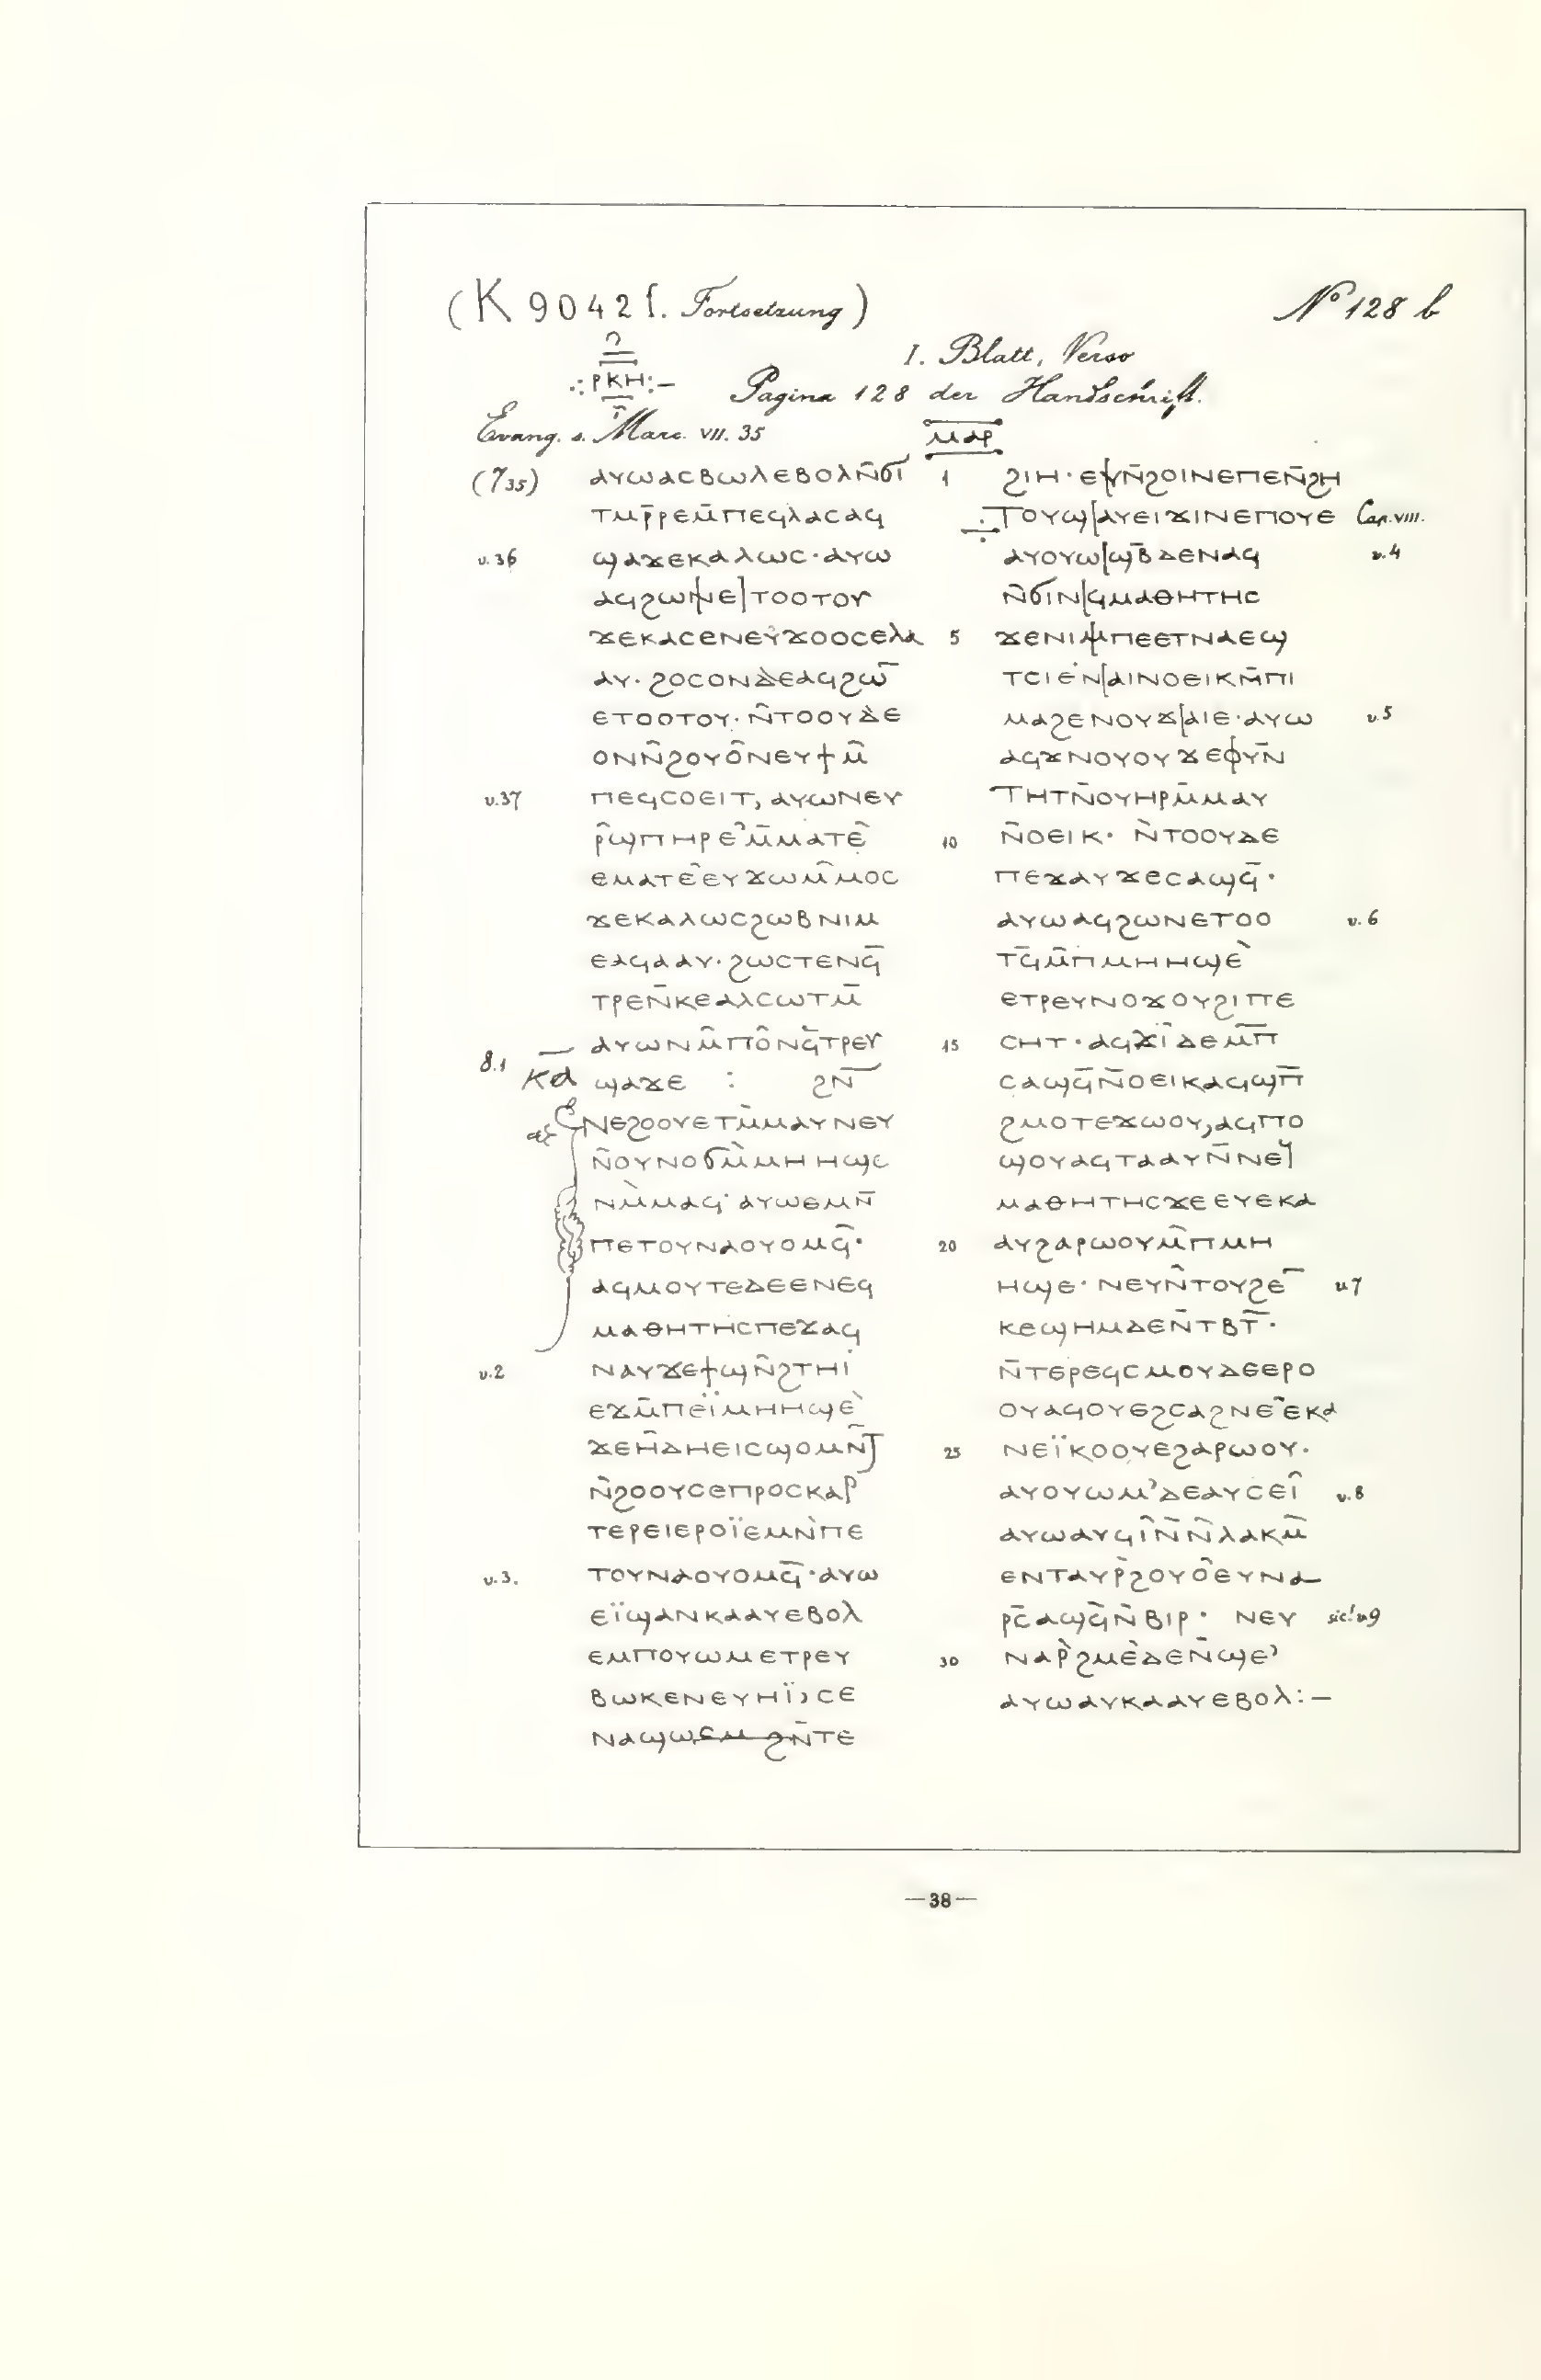 (K 9042 f. Fortsetzung) № 128 b
I. Blatt, Verso
·:ⲣⲕⲏ:– Pagina 128 der Handschrift.
Evang. s. Marc. VII. 35 ⲙⲁⲣ
(7 35) ⲁⲩⲱⲁⲥⲃⲱⲗⲉⲃⲟⲗⲛ̄ϭⲓ
ⲧⲙⲣ̄ⲣⲉⲙ̄ⲡⲉϥⲗⲁⲥⲁϥ
v.36 ϣⲁϫⲉⲕⲁⲗⲱⲥ·ⲁⲩⲱ
ⲁϥϩⲱⲛⲉ]ⲧⲟⲟⲧⲟⲩ
ϫⲉⲕⲁⲥⲉⲛⲉⲩϫⲟⲟⲥⲉⲗⲁ
ⲁⲩ·ϩⲟⲥⲟⲛⲇⲉⲁϥϩⲱ̄
ⲉⲧⲟⲟⲧⲟⲩ·ⲛ̄ⲧⲟⲟⲩⲇⲉ
ⲟⲛⲛ̄ϩⲟⲩⲟ̂ⲛⲉⲩϯⲙ̄
v.37 ⲡⲉϥⲥⲟⲉⲓⲧ, ⲁⲩⲱⲛⲉⲩ
ⲣ̄ϣⲡⲏⲣⲉ̓ⲙ̄ⲙⲁⲧⲉ̂
ⲉⲙⲁⲧⲉ̂ⲉⲩϫⲱⲙ̄ⲙⲟⲥ
ϫⲉⲕⲁⲗⲱⲥϩⲱⲃⲛⲓⲙ
ⲉⲁϥⲁⲁⲩ·ϩⲱⲥⲧⲉⲛϥ̄
ⲧⲣⲉⲛ̄ⲕⲉⲁⲗⲥⲱⲧⲙ̄
8.1 ⲁⲩⲱⲛⲙ̄ⲡⲟ̂ⲛϥ̄ⲧⲣⲉⲩ
ⲕⲁ ϣⲁϫⲉ : ϩⲛ̄
ⲉⲛⲉϩⲟⲟⲩⲉⲧⲙ̀ⲙⲁⲩⲛⲉⲩ
ⲛ̄ⲟⲩⲛⲟϭⲙ̀ⲙⲏⲏϣⲉ
ⲛⲙ̀ⲙⲁϥ·ⲁⲩⲱⲉⲙⲛ̄
ⲡⲉⲧⲟⲩⲛⲁⲟⲩⲟⲙϥ̄·
ⲁϥⲙⲟⲩⲧⲉⲇⲉⲉⲛⲉϥ
ⲙⲁⲑⲏⲧⲏⲥⲡⲉϫⲁϥ
v.2 ⲛⲁⲩϫⲉϯϣⲛ̄ϩⲧⲏⲓ̇
ⲉϫⲙ̄ⲡⲉⲓ̈ⲙⲏⲏϣⲉ̀
ϫⲉⲏ̄ⲇⲏⲉⲓⲥϣⲟⲙⲛ̄ⲧ
ⲛ̀ϩⲟⲟⲩⲥⲉⲡⲣⲟⲥⲕⲁⲣ
ⲧⲉⲣⲉⲓⲉⲣⲟⲓ̈ⲉⲙⲛ̀ⲡⲉ
v.3. ⲧⲟⲩⲛⲁⲟⲩⲟⲙϥ̄·ⲁⲩⲱ
ⲉⲓ̈ϣⲁⲛⲕⲁⲁⲩⲉⲃⲟⲗ
ⲉⲙⲡⲟⲩⲱⲙⲉⲧⲣⲉⲩ
ⲃⲱⲕⲉⲛⲉⲩⲏⲓ̈,ⲥⲉ
ⲛⲁϣⲱⲥⲙ ϩⲛ̄ⲧⲉ
1 ϩⲓⲏ·ⲉⲩⲛ̄ϩⲟⲓⲛⲉⲡⲉⲛ̄ϩⲏ
ⲧⲟⲩϣ|ⲁⲩⲉⲓϫⲓⲛⲉⲡⲟⲩⲉ Cap. VIII.
ⲁⲩⲟⲩⲱ|ϣⲃ̄ⲇⲉⲛⲁϥ v.4
ⲛ̄ϭⲓⲛ|ϥⲙⲁⲑⲏⲧⲏⲥ
5 ϫⲉⲛⲓⲙⲡⲉⲉⲧⲛⲁⲉϣ
ⲧⲥⲓⲉⲛ|ⲁⲓⲛⲟⲉⲓⲕⲙ̄ⲡⲓ
ⲙⲁϩⲉⲛⲟⲩϫ|ⲁⲓⲉ·ⲁⲩⲱ v.5
ⲁϥϫⲛⲟⲩⲟⲩϫⲉⲟⲩⲛ̄
ⲧⲏⲧⲛ̄ⲟⲩⲏⲣⲙ̄ⲙⲁⲩ
10 ⲛ̄ⲟⲉⲓⲕ· ⲛ̀ⲧⲟⲟⲩⲇⲉ
ⲡⲉϫⲁⲩϫⲉⲥⲁϣϥ̄·
ⲁⲩⲱⲁϥϩⲱⲛⲉⲧⲟⲟ v.6
ⲧϥ̄ⲙ̄ⲡⲙⲏⲏϣⲉ̀
ⲉⲧⲣⲉⲩⲛⲟϫⲟⲩϩⲓⲡⲉ
15 ⲥⲏⲧ·ⲁϥϫⲓ̈ⲇⲉⲙ̄ⲡ̄
ⲥⲁϣϥ̄ⲛ̄ⲟⲉⲓⲕⲁϥϣⲡ̄
ϩⲙⲟⲧⲉϫⲱⲟⲩ,ⲁϥⲡⲟ
ϣⲟⲩⲁϥⲧⲁⲁⲩⲛ̄ⲛⲉϥ
ⲙⲁⲑⲏⲧⲏⲥϫⲉⲉⲩⲉⲕⲁ
20 ⲁⲩϩⲁⲣⲱⲟⲩⲙ̄ⲡⲙⲏ
ⲏϣⲉ·ⲛⲉⲩⲛ̂ⲧⲟⲩϩⲉ̄ v.7
ⲕⲉϣⲏⲙⲇⲉⲛ̄ⲧⲃⲧ̄·
ⲛ̄ⲧⲉⲣⲉϥⲥⲙⲟⲩⲇⲉⲉⲣⲟ
ⲟⲩⲁϥⲟⲩⲉϩⲥⲁϩⲛⲉ̂ⲉⲕⲁ
25 ⲛⲉⲓ̈ⲕⲟⲟⲩⲉϩⲁⲣⲱⲟⲩ·
ⲁⲩⲟⲩⲱⲙ̓ⲇⲉⲁⲩⲥⲉⲓ̂ v.8
ⲁⲩⲱⲁⲩϥⲓ̂ⲛ̄ⲛ̄ⲗⲁⲕⲙ̄
ⲉⲛⲧⲁⲩⲣ̀ϩⲟⲩⲟ̂ⲉⲩⲛⲁ
ⲣ̄ⲥ̄ⲁϣϥ̄ⲛ̄ⲃⲓⲣ· ⲛⲉⲩ sic! v.9
30 ⲛⲁⲣ̀ϩⲙⲉ̀ⲇⲉⲛ̄ϣⲉ̓
ⲁⲩⲱⲁⲩⲕⲁⲁⲩⲉⲃⲟⲗ:–
—38—